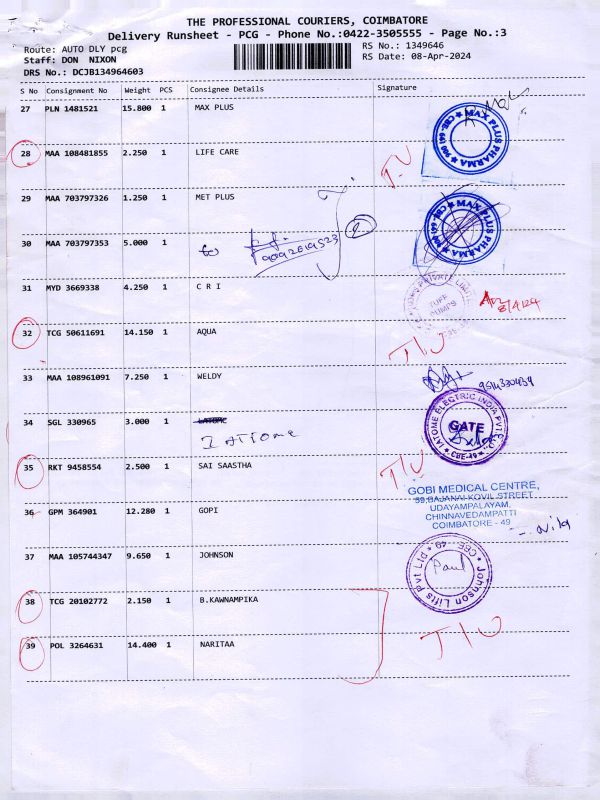 THE PROFESSIONAL COURIERS, COIMBATORE
Delivery Runsheet - PCG - Phone No.:0422-3505555 - Page No.:3
Route: AUTO DLY pcg
RS No.: 1349646
Staff: DON NIXON
RS Date: 08-Apr-2024
DRS No.: DCJB134964603
S No Consignment No Weight PCS Consignee Details Signature
27 PLN 1481521 15.800 1 MAX PLUS
MAX PLUS PHARMA
28 MAA 108481855 2.250 1 LIFE CARE
T.U
29 MAA 703797326 1.250 1 MET PLUS
MAX PLUS PHARMA
30 MAA 703797353 5.000 1 to
9092619523
31 MYD 3669338 4.250 1 C R I
TUFF PUMPS
8/4/24
32 TCG 50611691 14.150 1 AQUA
T/U
33 MAA 108961091 7.250 1 WELDY
9514330439
34 SGL 330965 3.000 1 LATOME
IATTOME
IATOME ELECTRIC INDIA PVT
GATE
CBE-49
35 RKT 9458554 2.500 1 SAI SAASTHA
T/U
36 GPM 364901 12.280 1 GOPI
GOBI MEDICAL CENTRE,
59,BAJANAI KOVIL STREET,
UDAYAMPALAYAM,
CHINNAVEDAMPATTI
COIMBATORE - 49
37 MAA 105744347 9.650 1 JOHNSON
Johnson Lifts Pvt Ltd CBE - 49
Paul
38 TCG 20102772 2.150 1 B.KAWNAMPIKA
T/U
39 POL 3264631 14.400 1 NARITAA